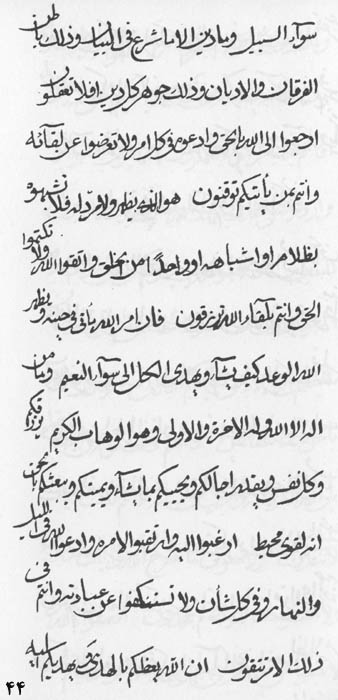 سوآء السبيل وما دين الا ما شرع فى البيان وذلك باطن
الفرقان والاديان وذلك جوهر كل دين افلا تعقلون
ارجعوا الى الله بالحق وادعوه فى كل امر ولا تعرضوا عن لقائه
وانتم بمن ياتيكم توقنون هو الذى يظهر ولا مرد له فلا
او اشباهه او واحداً من الخلق واتقوا الله ولا تكتموا
الحق وانتم بلقاء الله ترزقون فان امر الله يأتى فى حينه ويظهر
الله الوعد كيف يشآء ويهدى الكل الى سوآء النعيم وما من
اله الا الله وله الاخرة والاولى وهو الوهاب الكريم
وكل نفس ويقدر اجالكم ويحييكم بما يشآء ويميتكم ويبعثكم
انه لقوى محيط ارغبوا اليه وارتقبوا لامره وادعوا الله فى الليل
والنهار وفى كل شأن ولا تستنكفوا عن عبادته وانتم فى
ذلك الامر تتقون ان الله يعظكم بالهدى ويهديكم اليه
۴۴